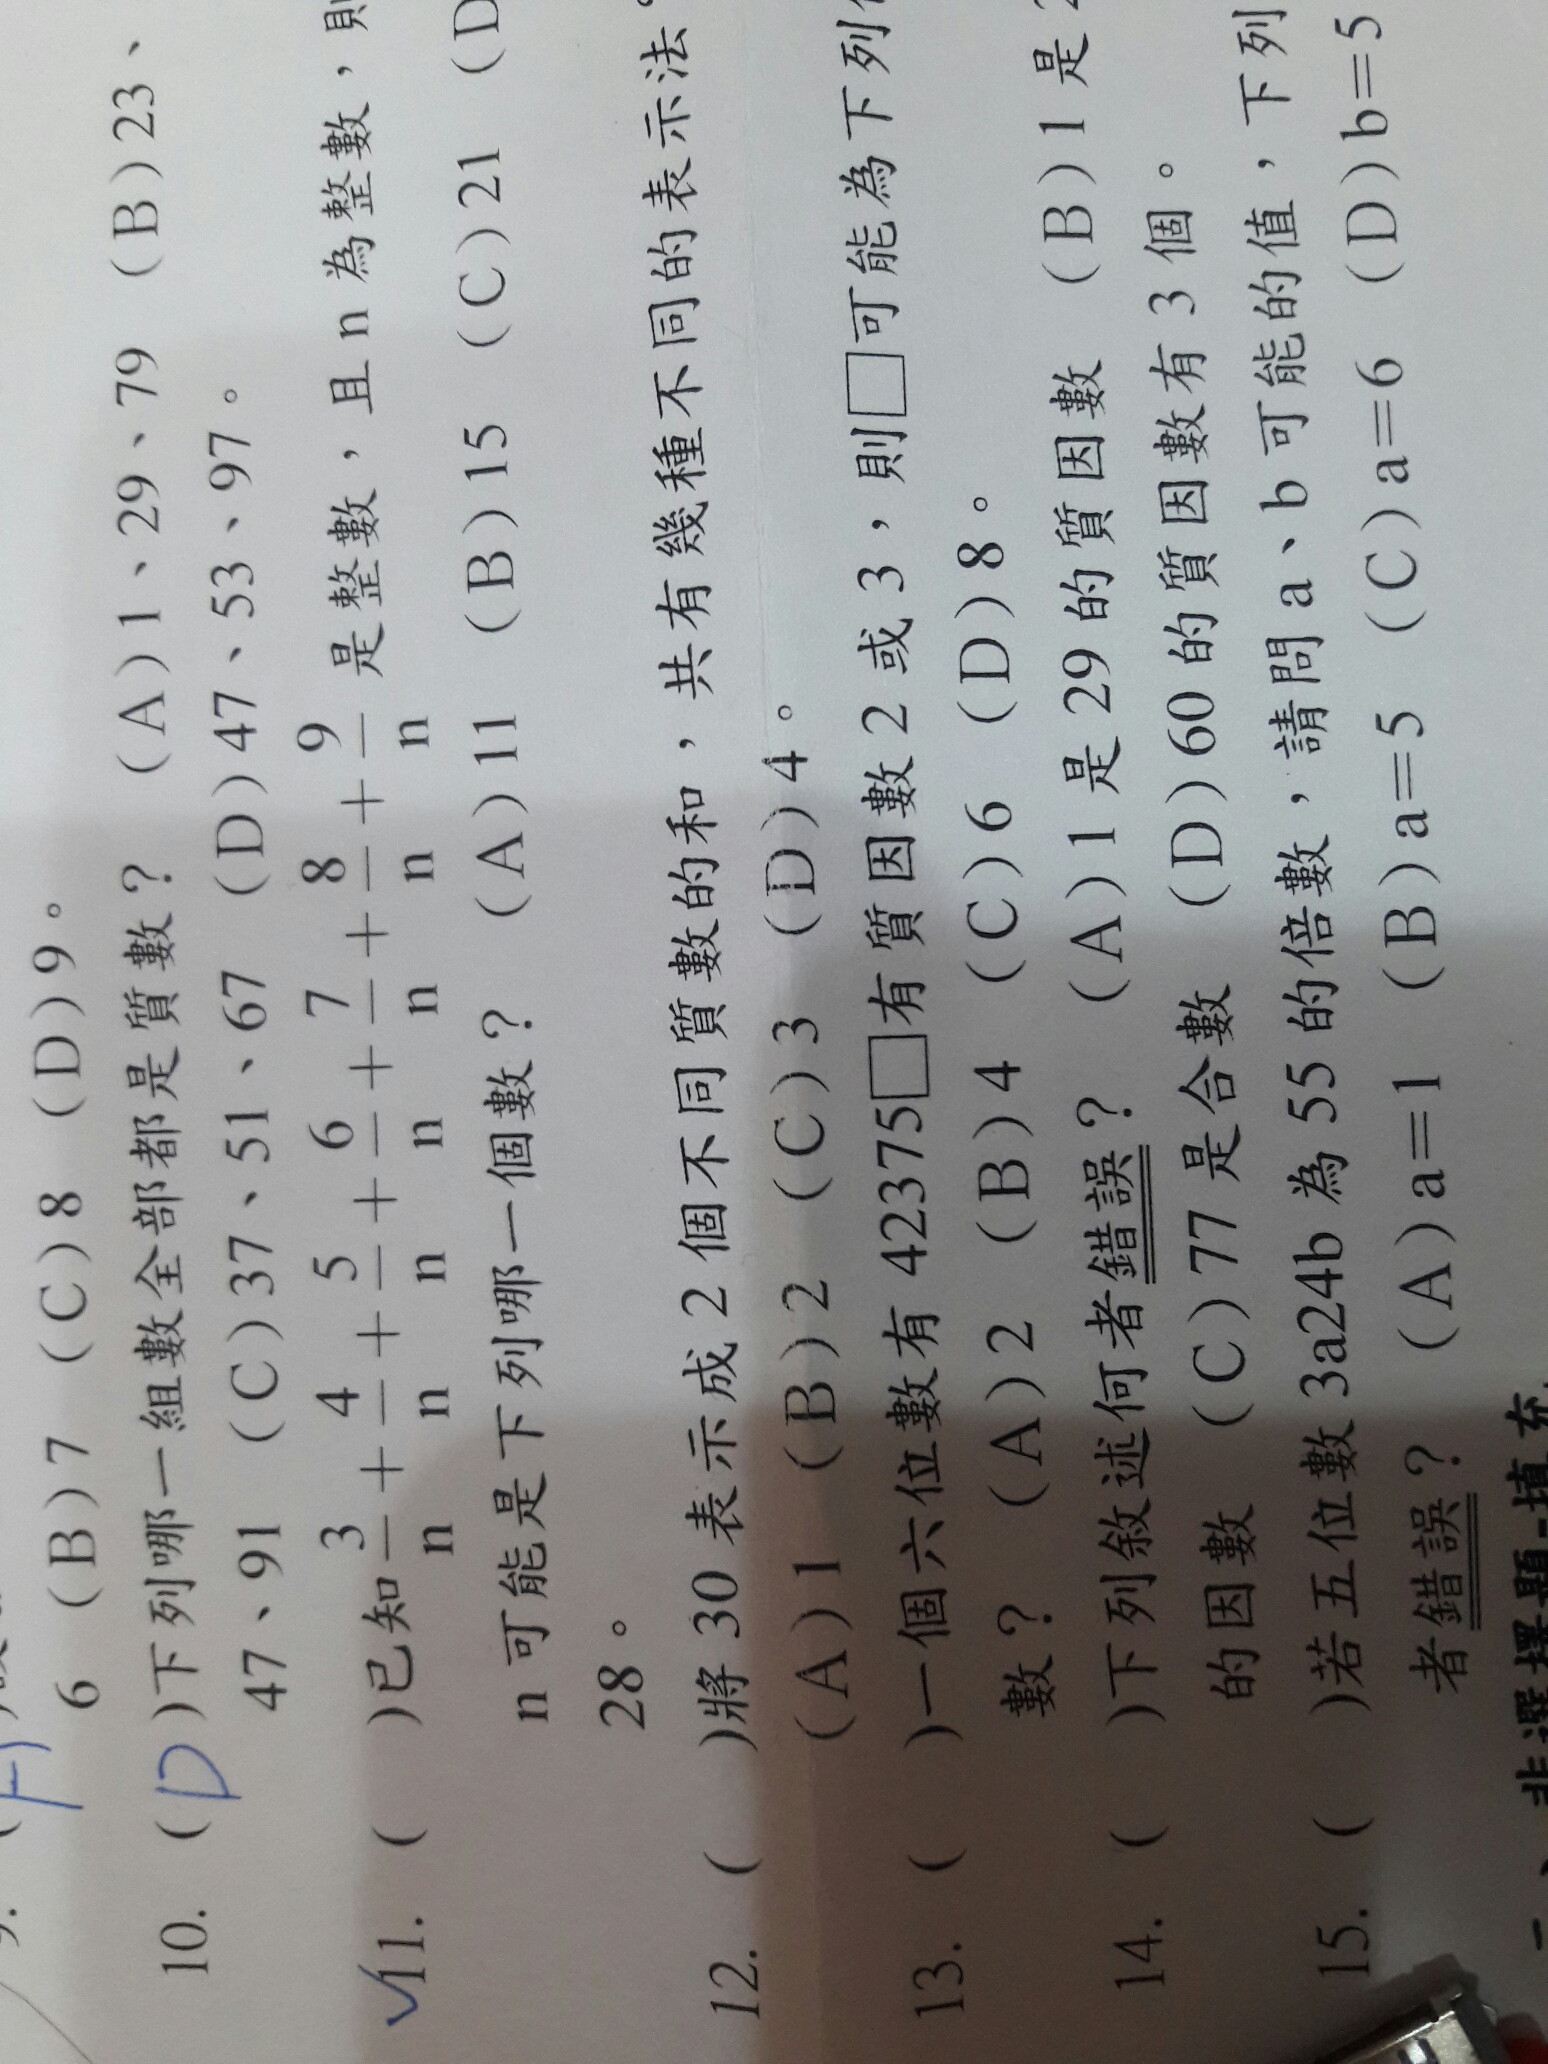 6 (B)7 (C)8 (D)9。
10. (D)下列哪一組數全部都是質數? (A)1、29、79 (B)23、
47、91 (C)37、51、67 (D)47、53、97。
√11. ( )已知3/n+4/n+5/n+6/n+7/n+8/n+9/n是整數,且n為整數,則
n可能是下列哪一個數? (A)11 (B)15 (C)21 (D
28。
12. ( )將30表示成2個不同質數的和,共有幾種不同的表示法
(A)1 (B)2 (C)3 (D)4。
13. ( )一個六位數有42375□有質因數2或3,則□可能為下列
數? (A)2 (B)4 (C)6 (D)8。
14. ( )下列敘述何者錯誤? (A)1是29的質因數 (B)1是
的因數 (C)77是合數 (D)60的質因數有3個。
15. ( )若五位數3a24b為55的倍數,請問a、b可能的值,下列
者錯誤? (A)a=1 (B)a=5 (C)a=6 (D)b=5
二、非選擇題-填充